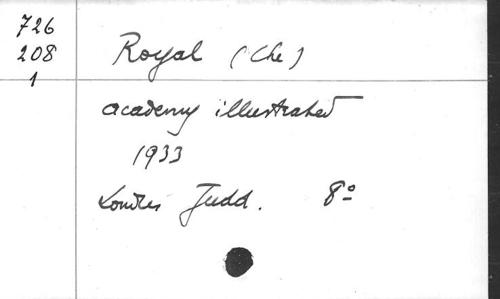 726
208
1
Royal (The)
academy illustrated
1933
Londres Judd. 8º